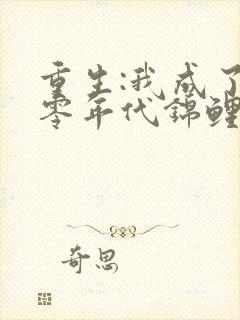 重生:我成了
零年代锦鲤
奇思